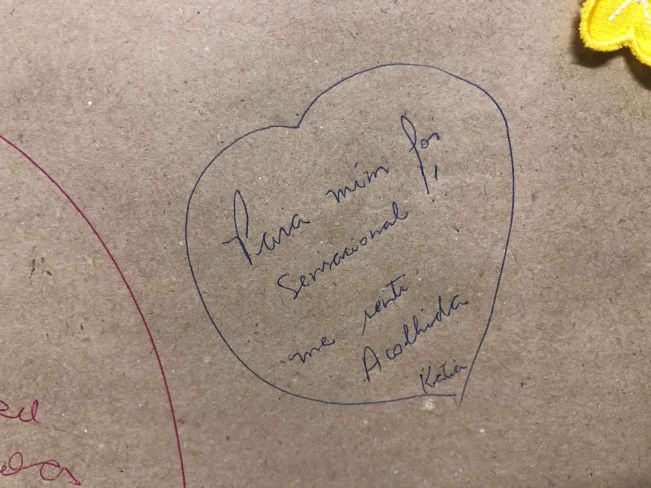 Para mim foi
sensacional!!
me senti
Acolhida
Katia